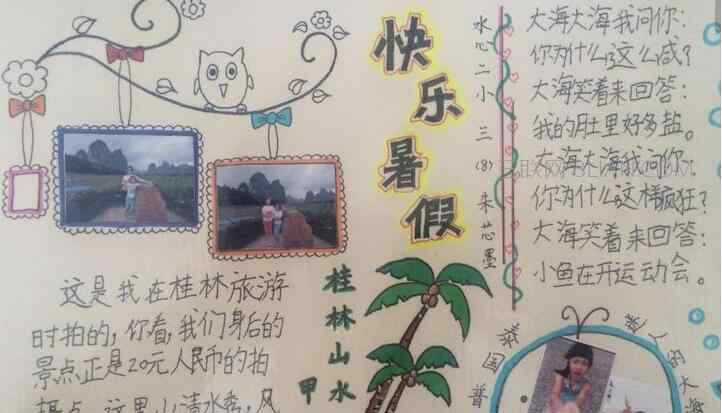 快乐暑假
水心二小 三(8) 朱芯墨
大海大海我问你：
你为什么这么咸？
大海笑着来回答：
我的肚里好多盐。
大海大海我问你：
你为什么这样疯狂？
大海笑着来回答：
小鱼在开运动会。
桂林山水
甲
这是我在桂林旅游
时拍的，你看，我们身后的
景点正是20元人民币的拍
摄点，这里山清水秀，风
泰国普
人的大海